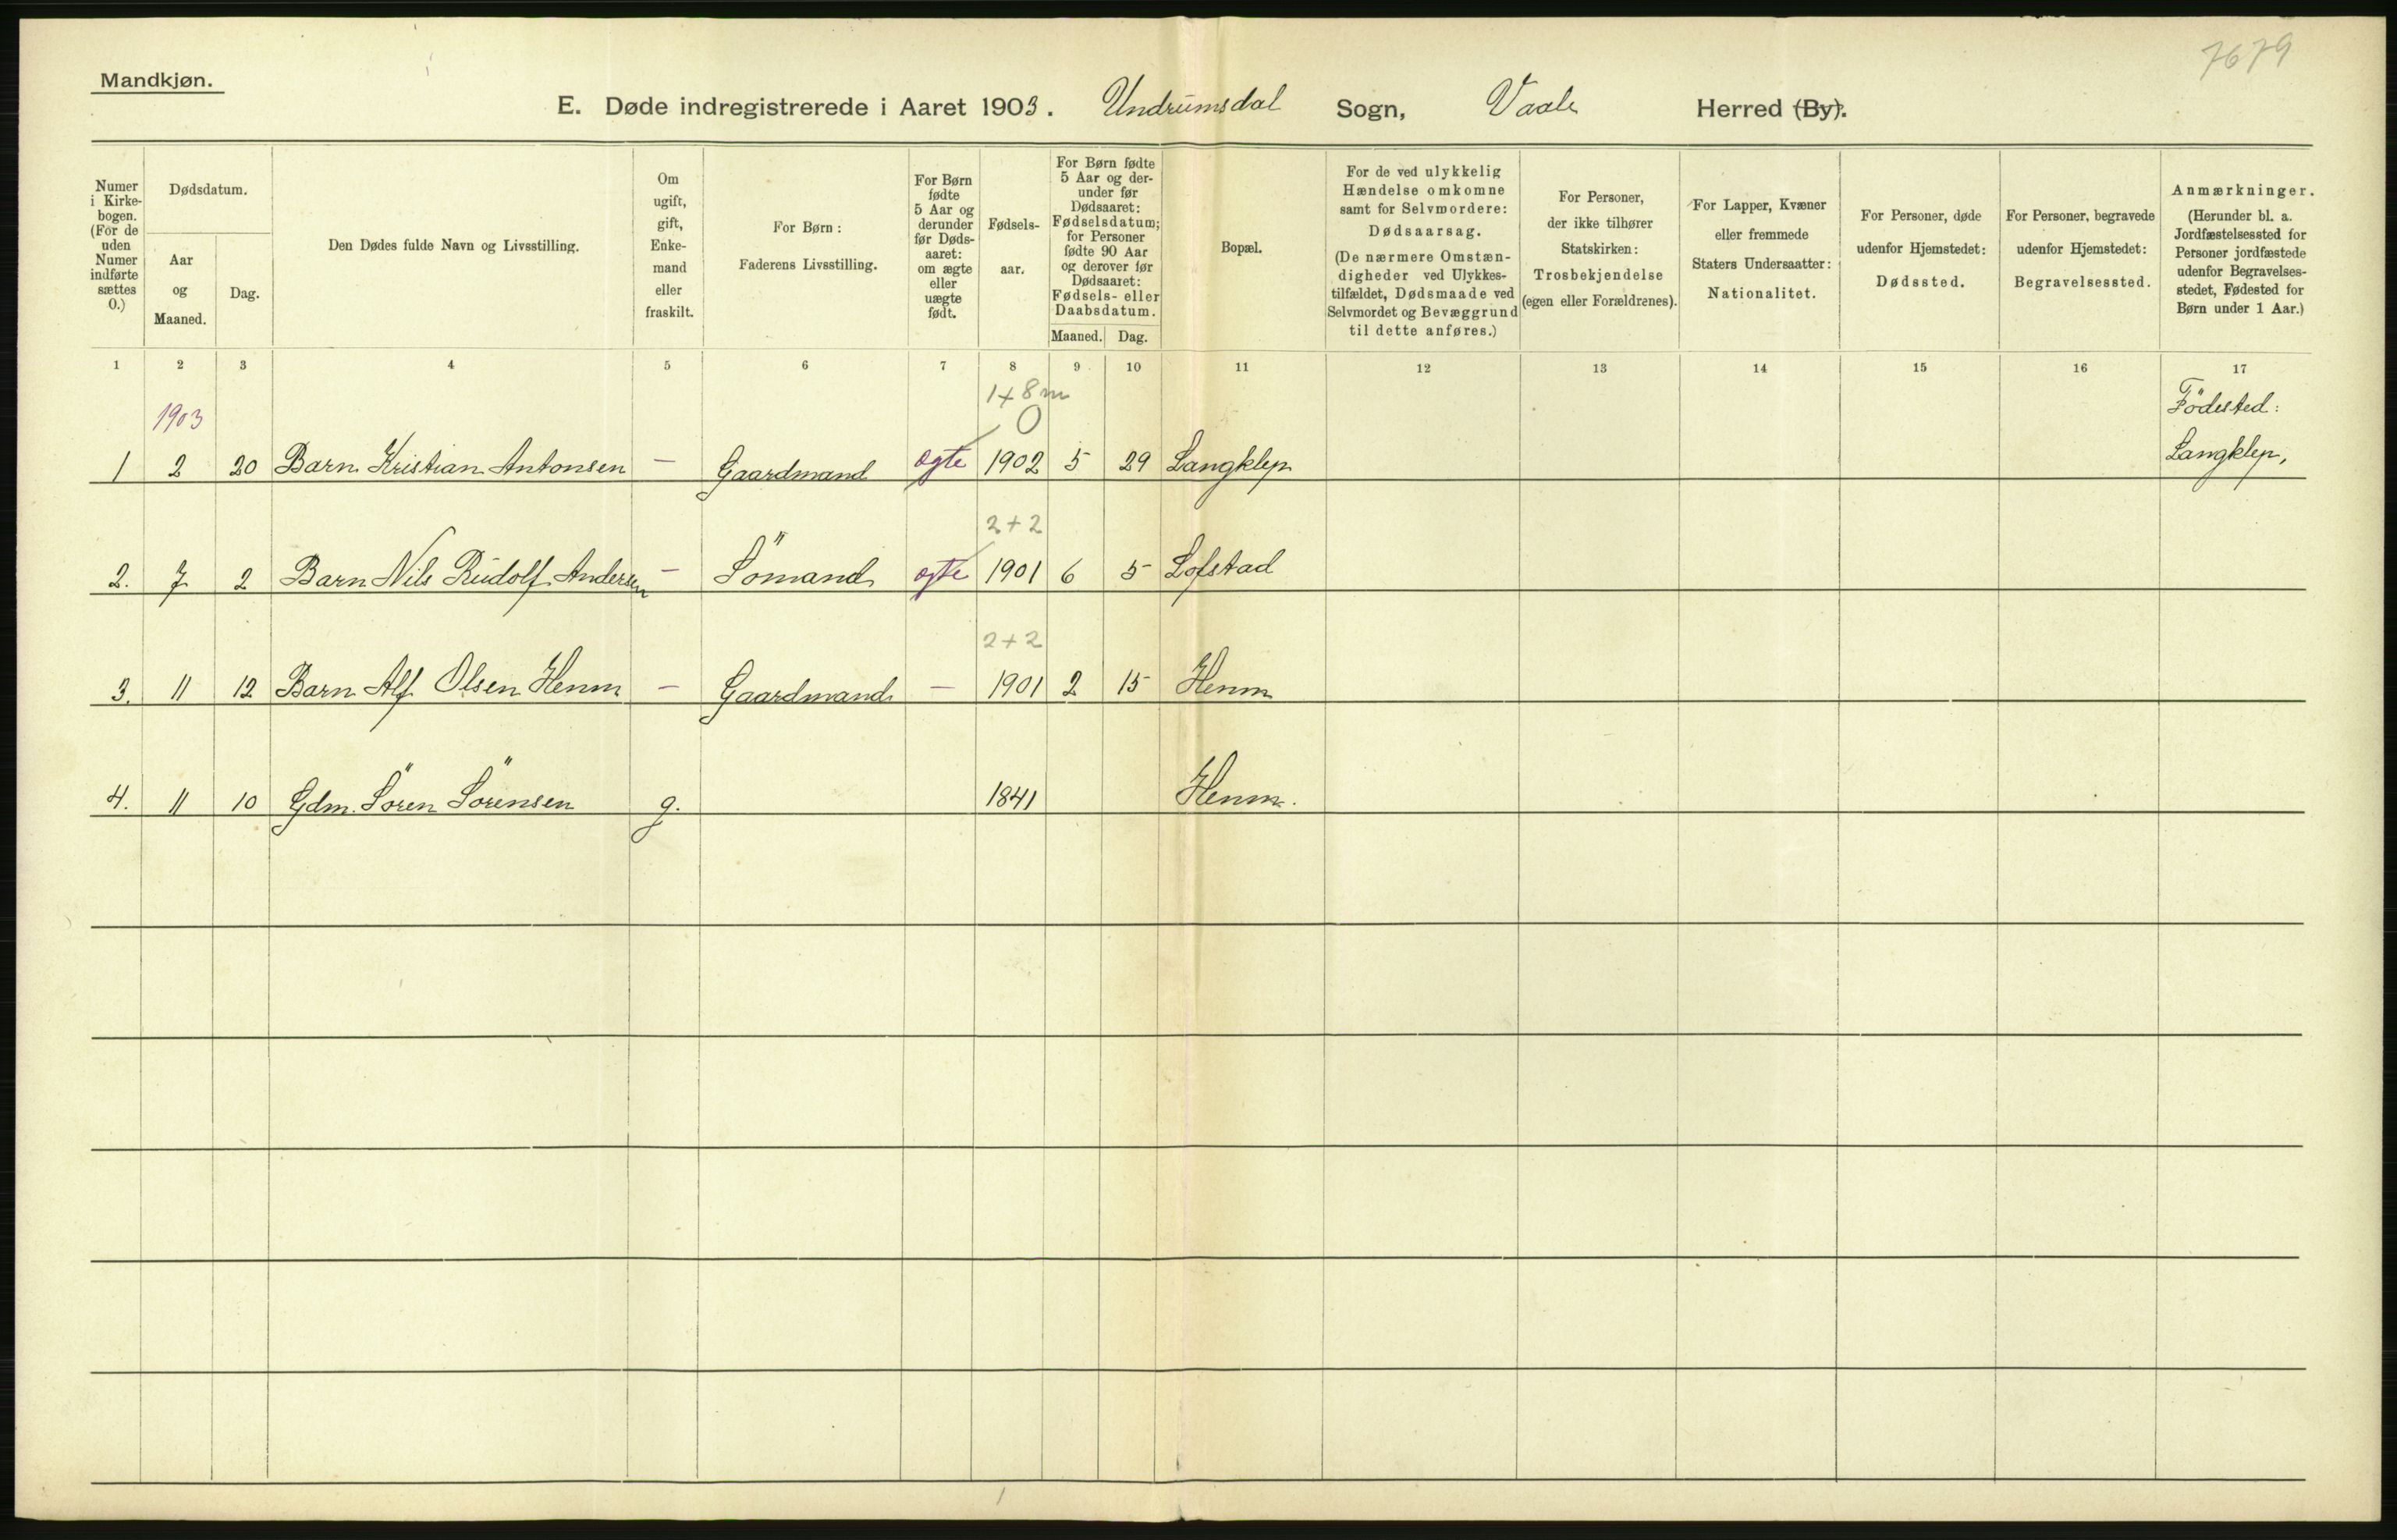 7679
Mandkjøn.
E. Døde indregistrerede i Aaret 1903. Undrumsdal Sogn, Vaale Herred (By).
Numer i Kirkebogen. (For de uden Numer indførte sættes 0.)
Dødsdatum.
Aar og Maaned.
Dag.
Den Dødes fulde Navn og Livsstilling.
Om ugift, gift, Enkemand eller fraskilt.
For Børn: Faderens Livsstilling.
For Børn fødte 5 Aar og derunder før Dødsaaret: om ægte eller uægte født.
Fødselsaar.
For Børn fødte 5 Aar og derunder før Dødsaaret: Fødselsdatum; for Personer fødte 90 Aar og derover før Dødsaaret: Fødsels- eller Daabsdatum.
Maaned. Dag.
Bopæl.
For de ved ulykkelig Hændelse omkomne samt for Selvmordere: Dødsaarsag. (De nærmere Omstændigheder ved Ulykkestilfældet, Dødsmaade ved Selvmordet og Bevæggrund til dette anføres.)
For Personer, der ikke tilhører Statskirken: Trosbekjendelse (egen eller Forældrenes).
For Lapper, Kvæner eller fremmede Staters Undersaatter: Nationalitet.
For Personer, døde udenfor Hjemstedet: Dødssted.
For Personer, begravede udenfor Hjemstedet: Begravelsessted.
Anmærkninger. (Herunder bl. a. Jordfæstelsessted for Personer jordfæstede udenfor Begravelsesstedet, Fødested for Børn under 1 Aar.)
1 2 3 4 5 6 7 8 9 10 11 12 13 14 15 16 17
1903 1+8m 0 Födested:
1 2 20 Barn Kristian Antonsen — Gaardmand ægte 1902 5 29 Langklep Langklep,
2+2
2. 7 2 Barn Nils Rudolf Andersen — Sömand ægte 1901 6 5 Lofstad
2+2
3. 11 12 Barn Alf Olsen Henm — Gaardmand — 1901 2 15 Henm
4. 11 10 Gdm. Sören Sörensen g. 1841 Henm.